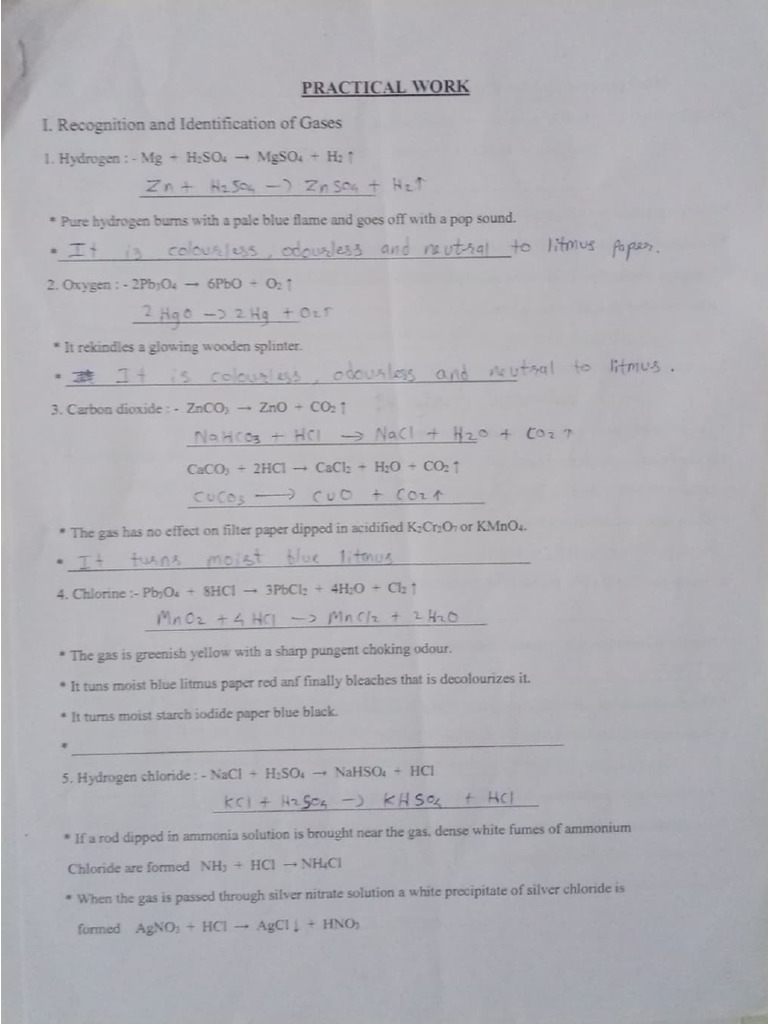 PRACTICAL WORK
I. Recognition and Identification of Gases
1. Hydrogen : - Mg + H₂SO₄ → MgSO₄ + H₂ ↑
Zn + H₂SO₄ → ZnSO₄ + H₂↑
* Pure hydrogen burns with a pale blue flame and goes off with a pop sound.
* It is colourless, odourless and neutral to litmus paper.
2. Oxygen : - 2Pb₃O₄ → 6PbO + O₂ ↑
2 HgO → 2 Hg + O₂↑
* It rekindles a glowing wooden splinter.
* It is colourless, odourless and neutral to litmus.
3. Carbon dioxide : - ZnCO₃ → ZnO + CO₂ ↑
NaHCO₃ + HCl → NaCl + H₂O + CO₂ ↑
CaCO₃ + 2HCl → CaCl₂ + H₂O + CO₂ ↑
CuCO₃ → CuO + CO₂↑
* The gas has no effect on filter paper dipped in acidified K₂Cr₂O₇ or KMnO₄.
* It turns moist blue litmus
4. Chlorine :- Pb₃O₄ + 8HCl → 3PbCl₂ + 4H₂O + Cl₂ ↑
MnO₂ + 4 HCl → MnCl₂ + 2 H₂O
* The gas is greenish yellow with a sharp pungent choking odour.
* It tuns moist blue litmus paper red anf finally bleaches that is decolourizes it.
* It turns moist starch iodide paper blue black.
*
5. Hydrogen chloride : - NaCl + H₂SO₄ → NaHSO₄ + HCl
KCl + H₂SO₄ → KHSO₄ + HCl
* If a rod dipped in ammonia solution is brought near the gas, dense white fumes of ammonium
Chloride are formed NH₃ + HCl → NH₄Cl
* When the gas is passed through silver nitrate solution a white precipitate of silver chloride is
formed AgNO₃ + HCl → AgCl ↓ + HNO₃